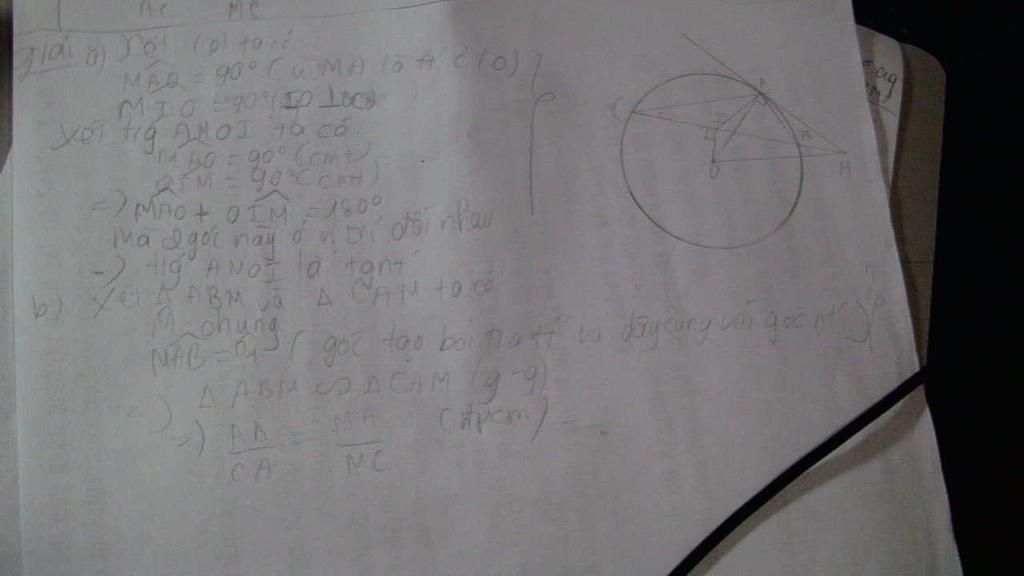 AC MC
giải a) Xét (O) ta có
MAO = 90° (vì MA là tt' c' (O)
MIO = 90° (IO ⊥
Xét tg AMOI ta có
MAO = 90° (cmt)
OIM = 90° (cmt)
=) MAO + OIM = 180°
Mà 2 góc này ở vị trí đối nhau
=) tg AMOI là tgnt
b) Xét Δ ABM và Δ CAM ta có
M chung
MAB = C1 ( góc tạo bởi tia tt' và dây cung với góc nt' )
=) Δ ABM ∽ Δ CAM (g-g)
=) AB/CA = MA/MC (đpcm)
C
I
O
B
M